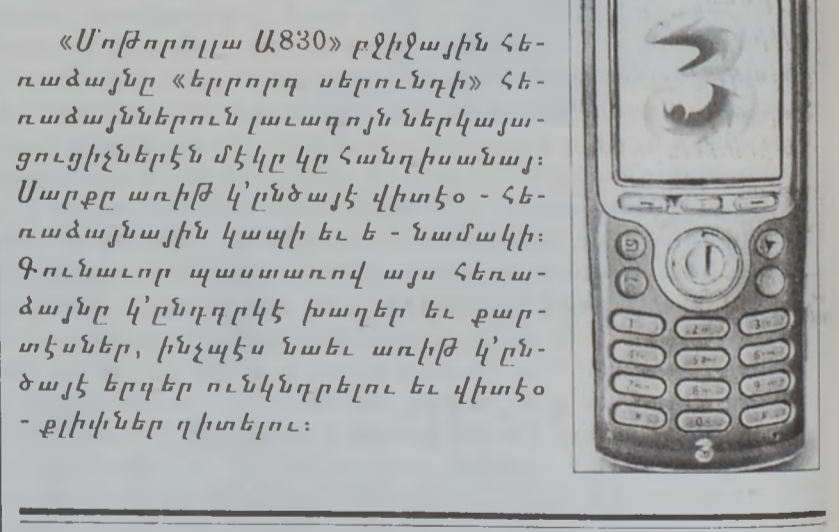 «Մոթորոլլա Ա830» բջիջային հե-
ռաձայնը «երրորդ սերունդի» հե-
ռաձայններուն լաւագոյն ներկայա-
ցուցիչներէն մէկը կը հանդիսանայ։
Սարքը առիթ կ՚ընծայէ վիտէօ - հե-
ռաձայնային կապի եւ ե - նամակի։
Գունաւոր պաստառով այս հեռա-
ձայնը կ՚ընդգրկէ խաղեր եւ քար-
տէսներ, ինչպէս նաեւ առիթ կ՚ըն-
ծայէ երգեր ունկնդրելու եւ վիտէօ
- քլիփներ դիտելու։
3